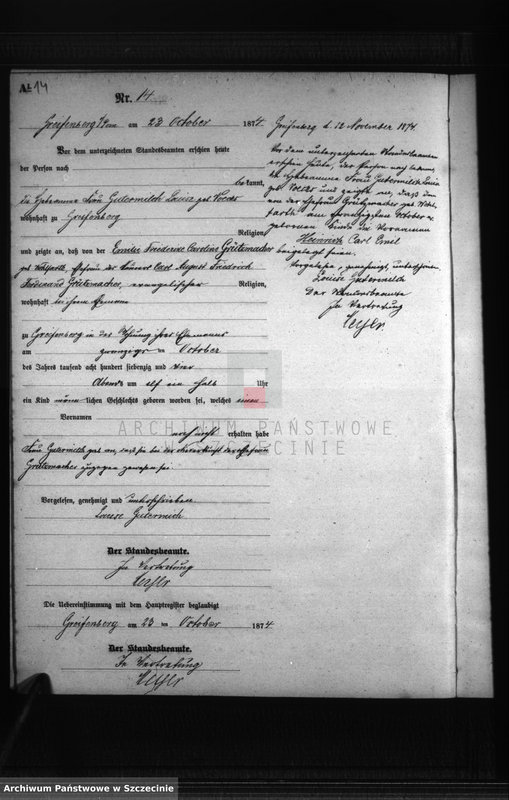 A 14
Nr. 14
Greifenberg i/Pom am 23 October 1874
Vor dem unterzeichneten Standesbeamten erschien heute
der Person nach
bekannt,
die Hebeamme Frau Gutermilch Louise geb.
wohnhaft zu Greifenberg
Religion
und zeigte an, daß von der Emilie Friederike Caroline Grützmacher
geb. Ehefrau des Carl August Friedrich
Ferdinand Grützmacher, evangelischer Religion,
wohnhaft bei ihrem Ehemann
zu Greifenberg in der Wohnung ihres Ehemanns
am zwanzigsten October
des Jahres tausend acht hundert siebenzig und vier
Abends um elf ein halb Uhr
ein Kind männlichen Geschlechts geboren worden sei, welches einen
Vornamen
noch nicht erhalten habe
Frau Gutermilch gab an, daß sie bei der Niederkunft der Ehefrau
Grützmacher zugegen gewesen sei.
Vorgelesen, genehmigt und unterschrieben
Louise Gutermilch
Der Standesbeamte.
In Vertretung
Die Uebereinstimmung mit dem Hauptregister beglaubigt
Greifenberg am 23 ten October 1874
Der Standesbeamte.
In Vertretung
Greifenberg d. 12 November 1874.
Vor dem unterzeichneten Standesbeamten
erschien heute, der Person nach bekannt,
die Hebeamme Frau Gutermilch Louise
geb. und zeigte an, daß dem
von der Ehefrau Grützmacher geb.
am zwanzigsten October
geborenen Kinde die Vornamen
Heinrich Carl Emil
beigelegt seien.
Vorgelesen, genehmigt, unterschrieben
Louise Gutermilch
Der Standesbeamte
In Vertretung
ARCHIWUM PAŃSTWOWE
W SZCZECINIE
Archiwum Państwowe w Szczecinie